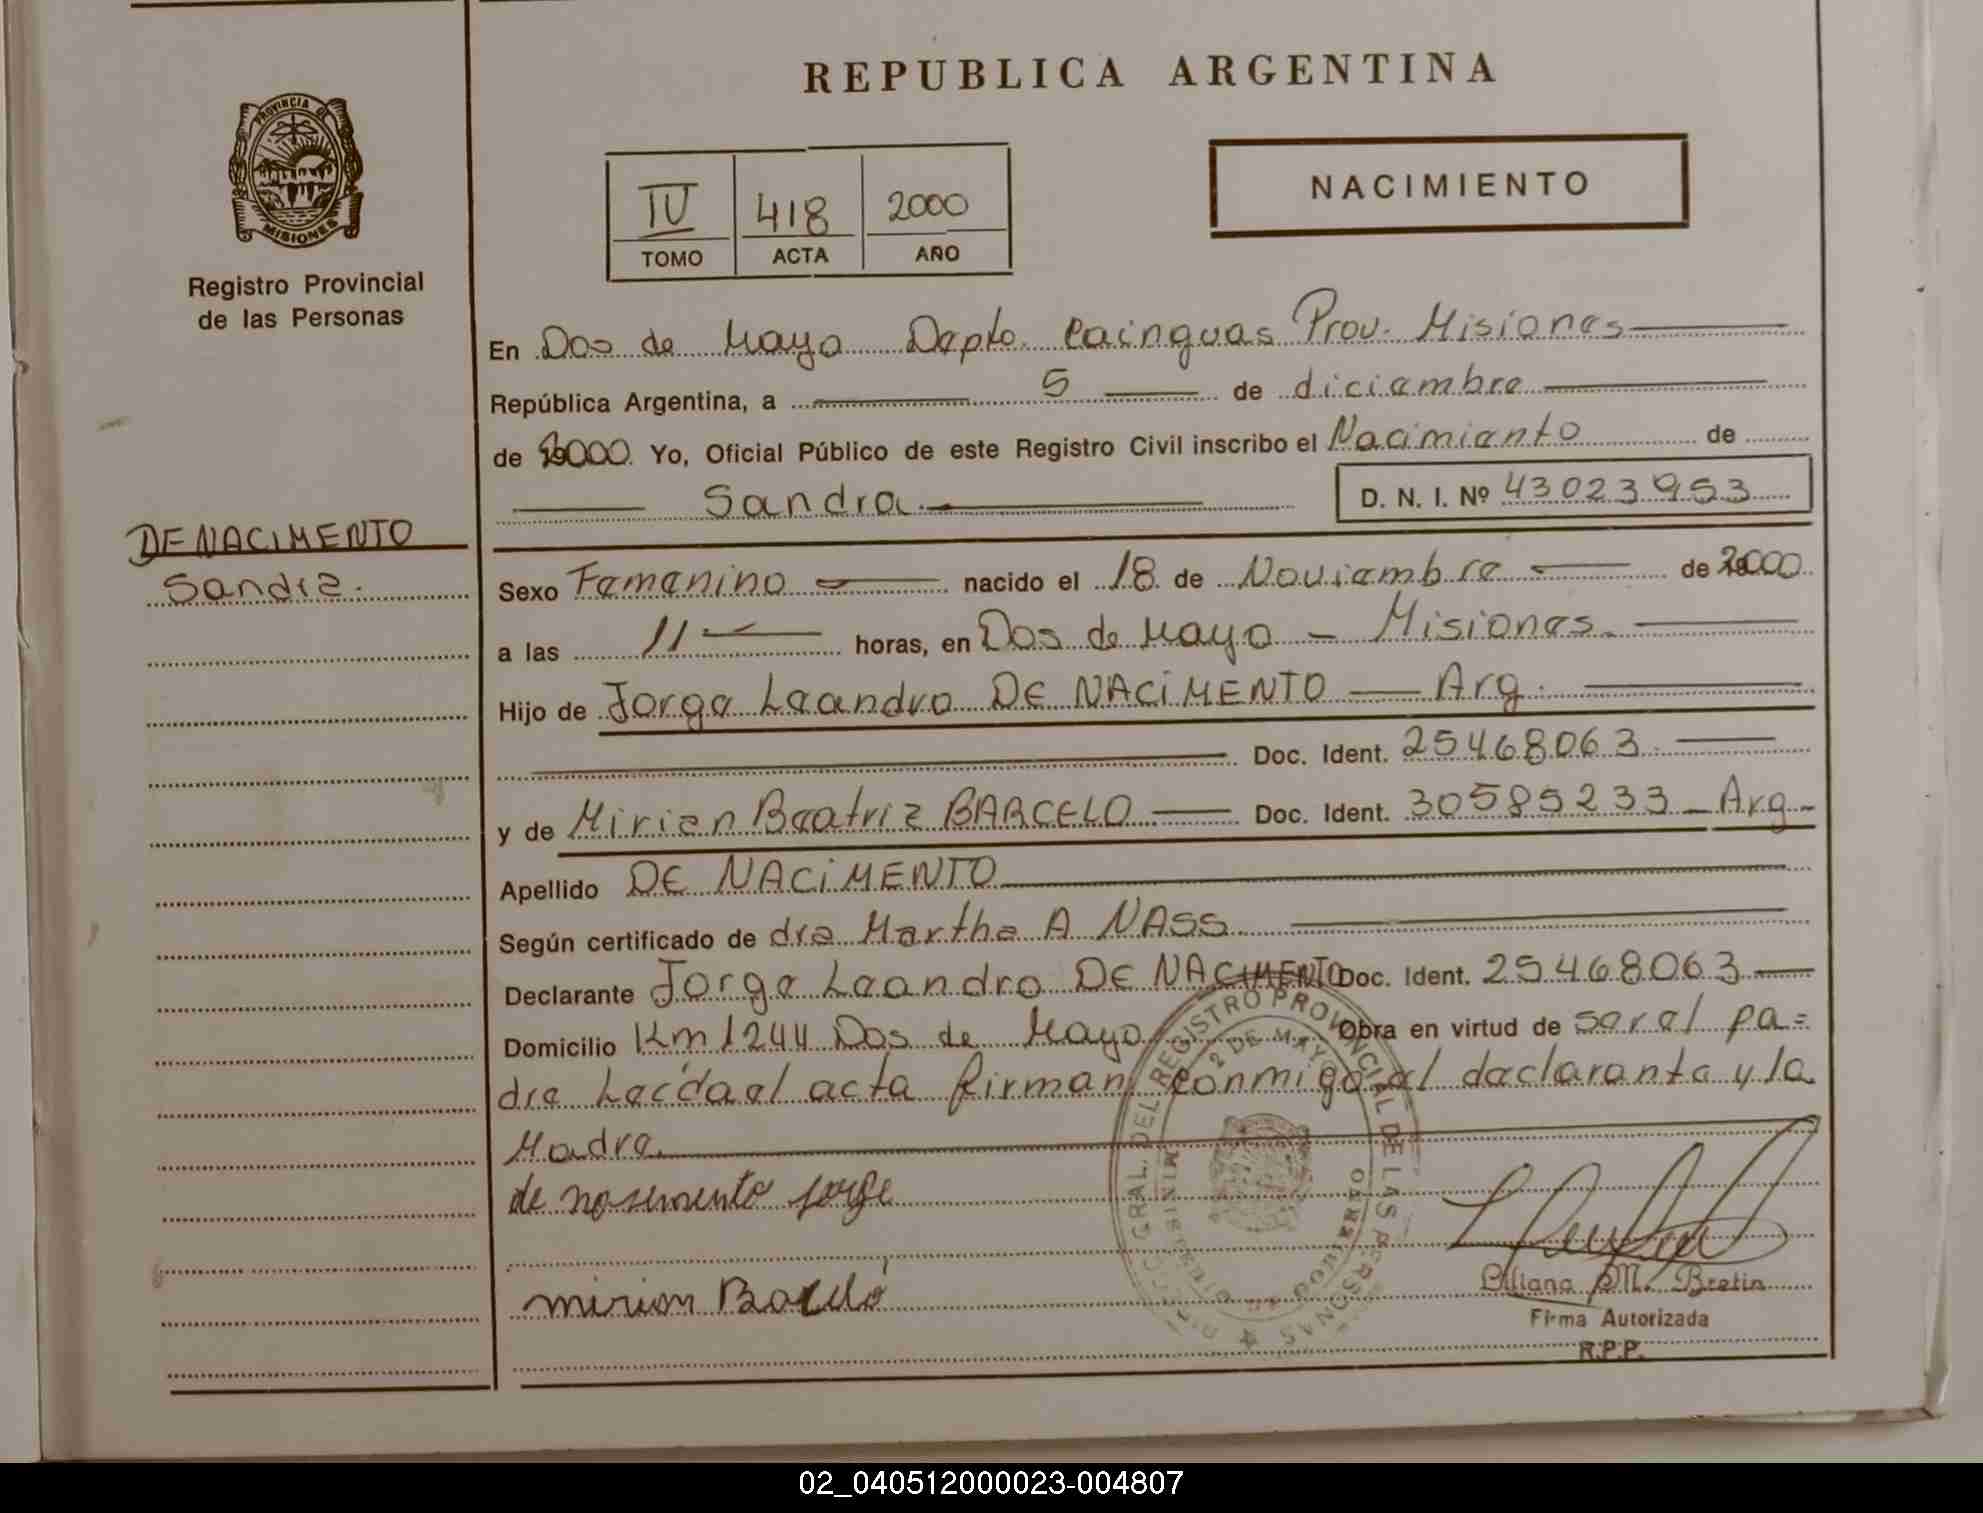 REPUBLICA ARGENTINA
PROVINCIA DE
MISIONES
Registro Provincial
de las Personas
IV 418 2000
TOMO ACTA AÑO
NACIMIENTO
En Dos de Mayo Depto. Cainguas Prov. Misiones
República Argentina, a 5 de diciembre
de 2000 Yo, Oficial Público de este Registro Civil inscribo el Nacimiento de
Sandra D. N. I. Nº 43023953
DE NACIMENTO
Sandra.
Sexo Femenino nacido el 18 de Noviembre de 2000
a las 11 horas, en Dos de Mayo - Misiones.
Hijo de Jorge Leandro DE NACIMENTO Arg.
Doc. Ident. 25468063
y de Mirian Beatriz BARCELO Doc. Ident. 30585233 - Arg -
Apellido DE NACIMENTO
Según certificado de dra Martha A NASS
Declarante Jorge Leandro DE NACIMENTO Doc. Ident. 25468063
Domicilio Km 1244 Dos de Mayo Obra en virtud de ser el pa=
dre Leída el acta firman conmigo el declarante y la
Madre.
de nasemento Jorge
mirian Barceló
REGISTRO PROVINCIAL DE LAS PERSONAS
2 DE MAYO
Liliana M. Bretin
Firma Autorizada
R.P.P.
02_040512000023-004807